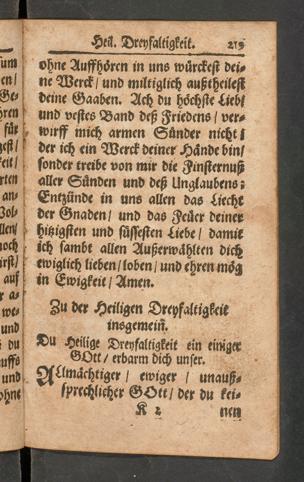 Heil. Dreyfaltigkeit. 219
ohne Auffhören in uns würckest dei-
ne Werck / und miltiglich außtheilest
deine Gaaben. Ach du höchste Lieb!
und vestes Band deß Friedens / ver-
wirff mich armen Sünder nicht /
der ich ein Werck deiner Hände bin /
sonder treibe von mir die Finsternuß
aller Sünden und deß Unglaubens:
Entzünde in uns allen das Liecht
der Gnaden / und das Feüer deiner
hitzigsten und süssesten Liebe / damit
ich sambt allen Außerwählten dich
ewiglich lieben / loben / und ehren mög
in Ewigkeit / Amen.
Zu der Heiligen Dreyfaltigkeit
insgemein̄.
Du Heilige Dreyfaltigkeit ein einiger
GOtt / erbarm dich unser.
Allmächtiger / ewiger / unauß-
sprechlicher GOtt / der du kei-
K 2 nen
um
en /
Ge-
hren
für
gest /
keit /
rten
an-
Vol-
llen /
noch
irst /
auf
r a-
we-
und
du
uffs
und
ohne